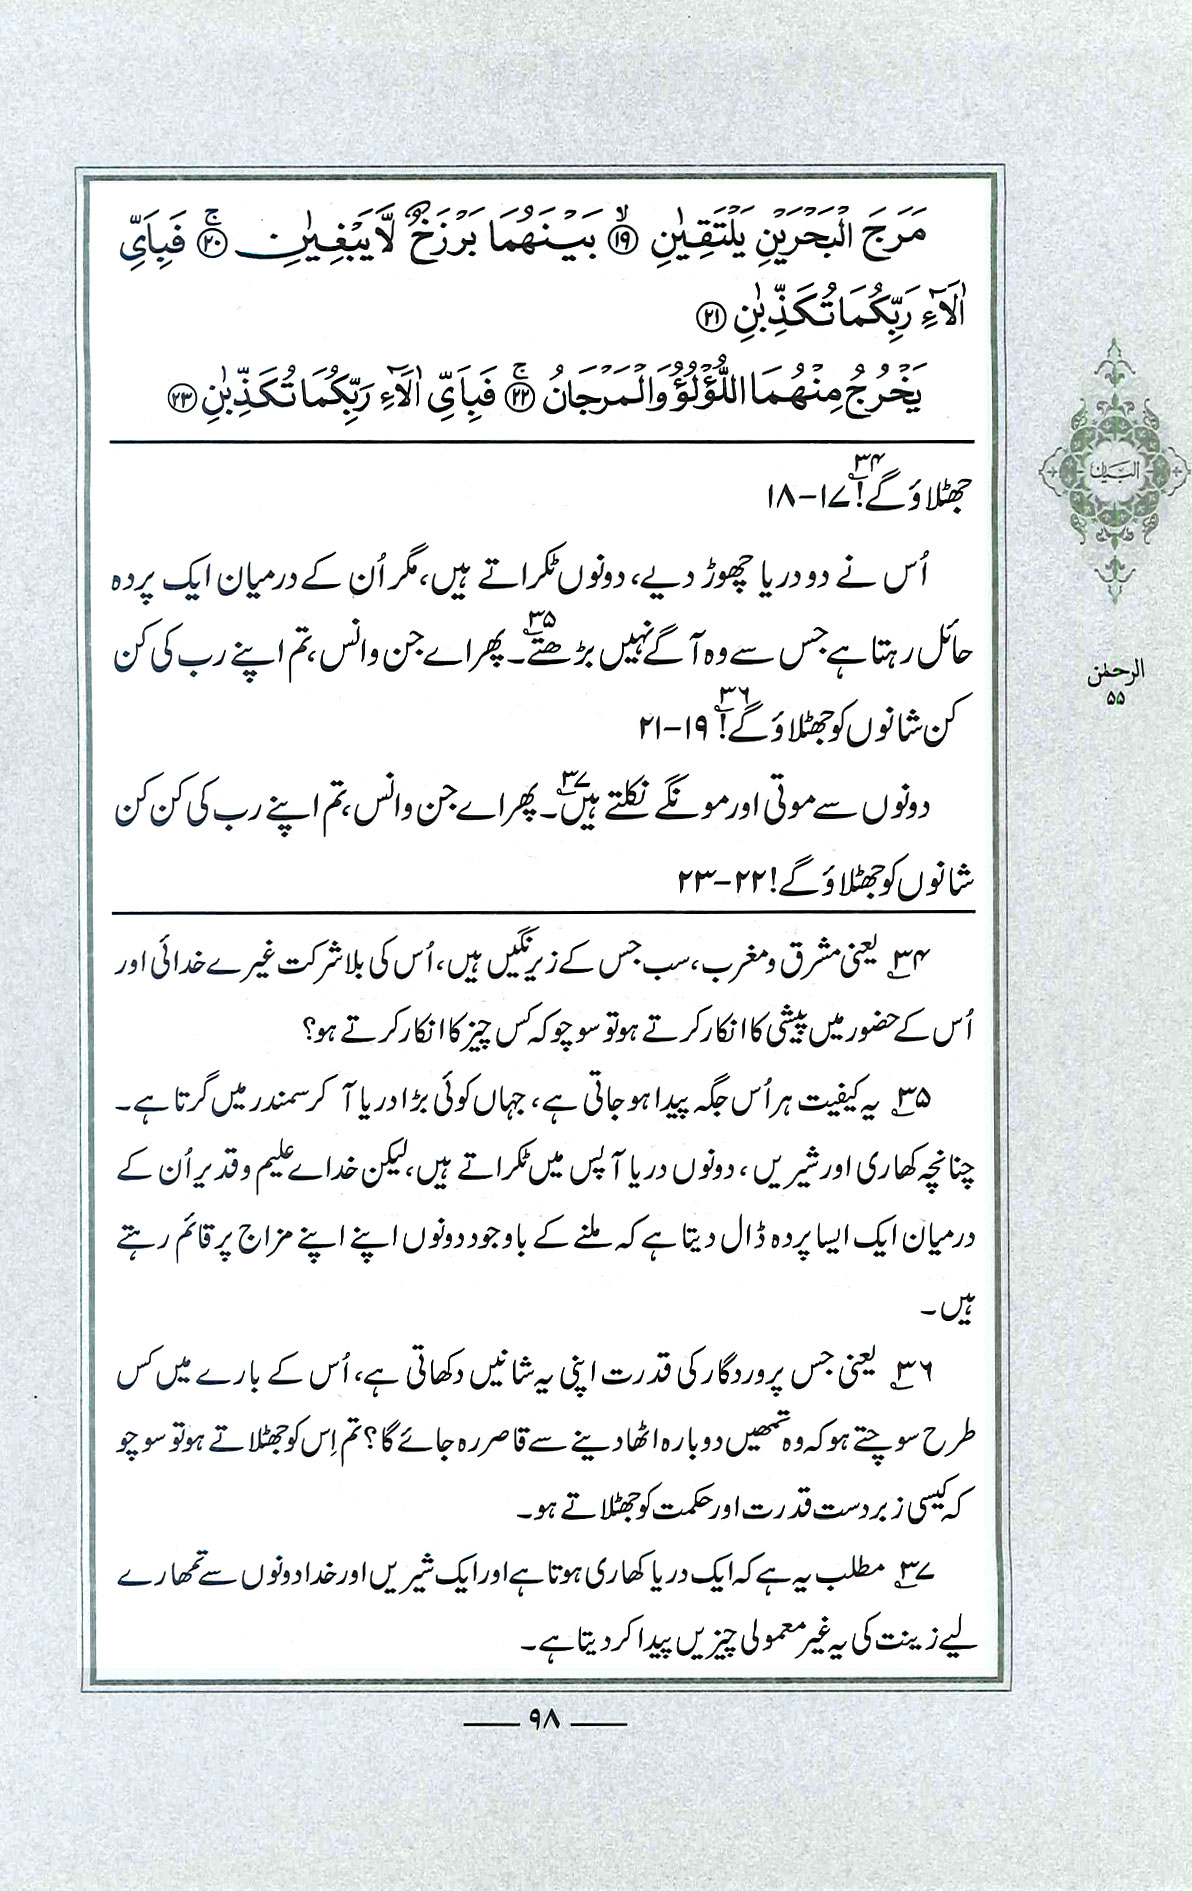 مَرَجَ الْبَحْرَيْنِ يَلْتَقِيٰنِ ﴿۱۹﴾ بَيْنَهُمَا بَرْزَخٌ لَّا يَبْغِيٰنِ ﴿۲۰﴾ فَبِاَيِّ
اٰلَآءِ رَبِّكُمَا تُكَذِّبٰنِ ﴿۲۱﴾
يَخْرُجُ مِنْهُمَا اللُّؤْلُؤُ وَالْمَرْجَانُ ﴿۲۲﴾ فَبِاَيِّ اٰلَآءِ رَبِّكُمَا تُكَذِّبٰنِ ﴿۲۳﴾
جھٹلاؤ گے!۳۴ ۱۷-۱۸
اُس نے دو دریا چھوڑ دیے، دونوں ٹکراتے ہیں، مگر اُن کے درمیان ایک پردہ
حائل رہتا ہے جس سے وہ آگے نہیں بڑھتے۳۵۔ پھر اے جن و انس، تم اپنے رب کی کن
کن شانوں کو جھٹلاؤ گے!۳۶ ۱۹-۲۱
دونوں سے موتی اور مونگے نکلتے ہیں۳۷۔ پھر اے جن و انس، تم اپنے رب کی کن کن
شانوں کو جھٹلاؤ گے! ۲۲-۲۳
۳۴ یعنی مشرق و مغرب، سب جس کے زیرنگیں ہیں، اُس کی بلاشرکت غیرے خدائی اور
اُس کے حضور میں پیشی کا انکار کرتے ہو تو سوچو کہ کس چیز کا انکار کرتے ہو؟
۳۵ یہ کیفیت ہر اُس جگہ پیدا ہو جاتی ہے، جہاں کوئی بڑا دریا آ کر سمندر میں گرتا ہے۔
چنانچہ کھاری اور شیریں، دونوں دریا آپس میں ٹکراتے ہیں، لیکن خداے علیم و قدیر اُن کے
درمیان ایک ایسا پردہ ڈال دیتا ہے کہ ملنے کے باوجود دونوں اپنے اپنے مزاج پر قائم رہتے
ہیں۔
۳۶ یعنی جس پروردگار کی قدرت اپنی یہ شانیں دکھاتی ہے، اُس کے بارے میں کس
طرح سوچتے ہو کہ وہ تمھیں دوبارہ اٹھا دینے سے قاصر رہ جائے گا؟ تم اِس کو جھٹلاتے ہو تو سوچو
کہ کیسی زبردست قدرت اور حکمت کو جھٹلاتے ہو۔
۳۷ مطلب یہ ہے کہ ایک دریا کھاری ہوتا ہے اور ایک شیریں اور خدا دونوں سے تمھارے
لیے زینت کی یہ غیر معمولی چیزیں پیدا کر دیتا ہے۔
البیان
الرحمٰن
۵۵
۹۸